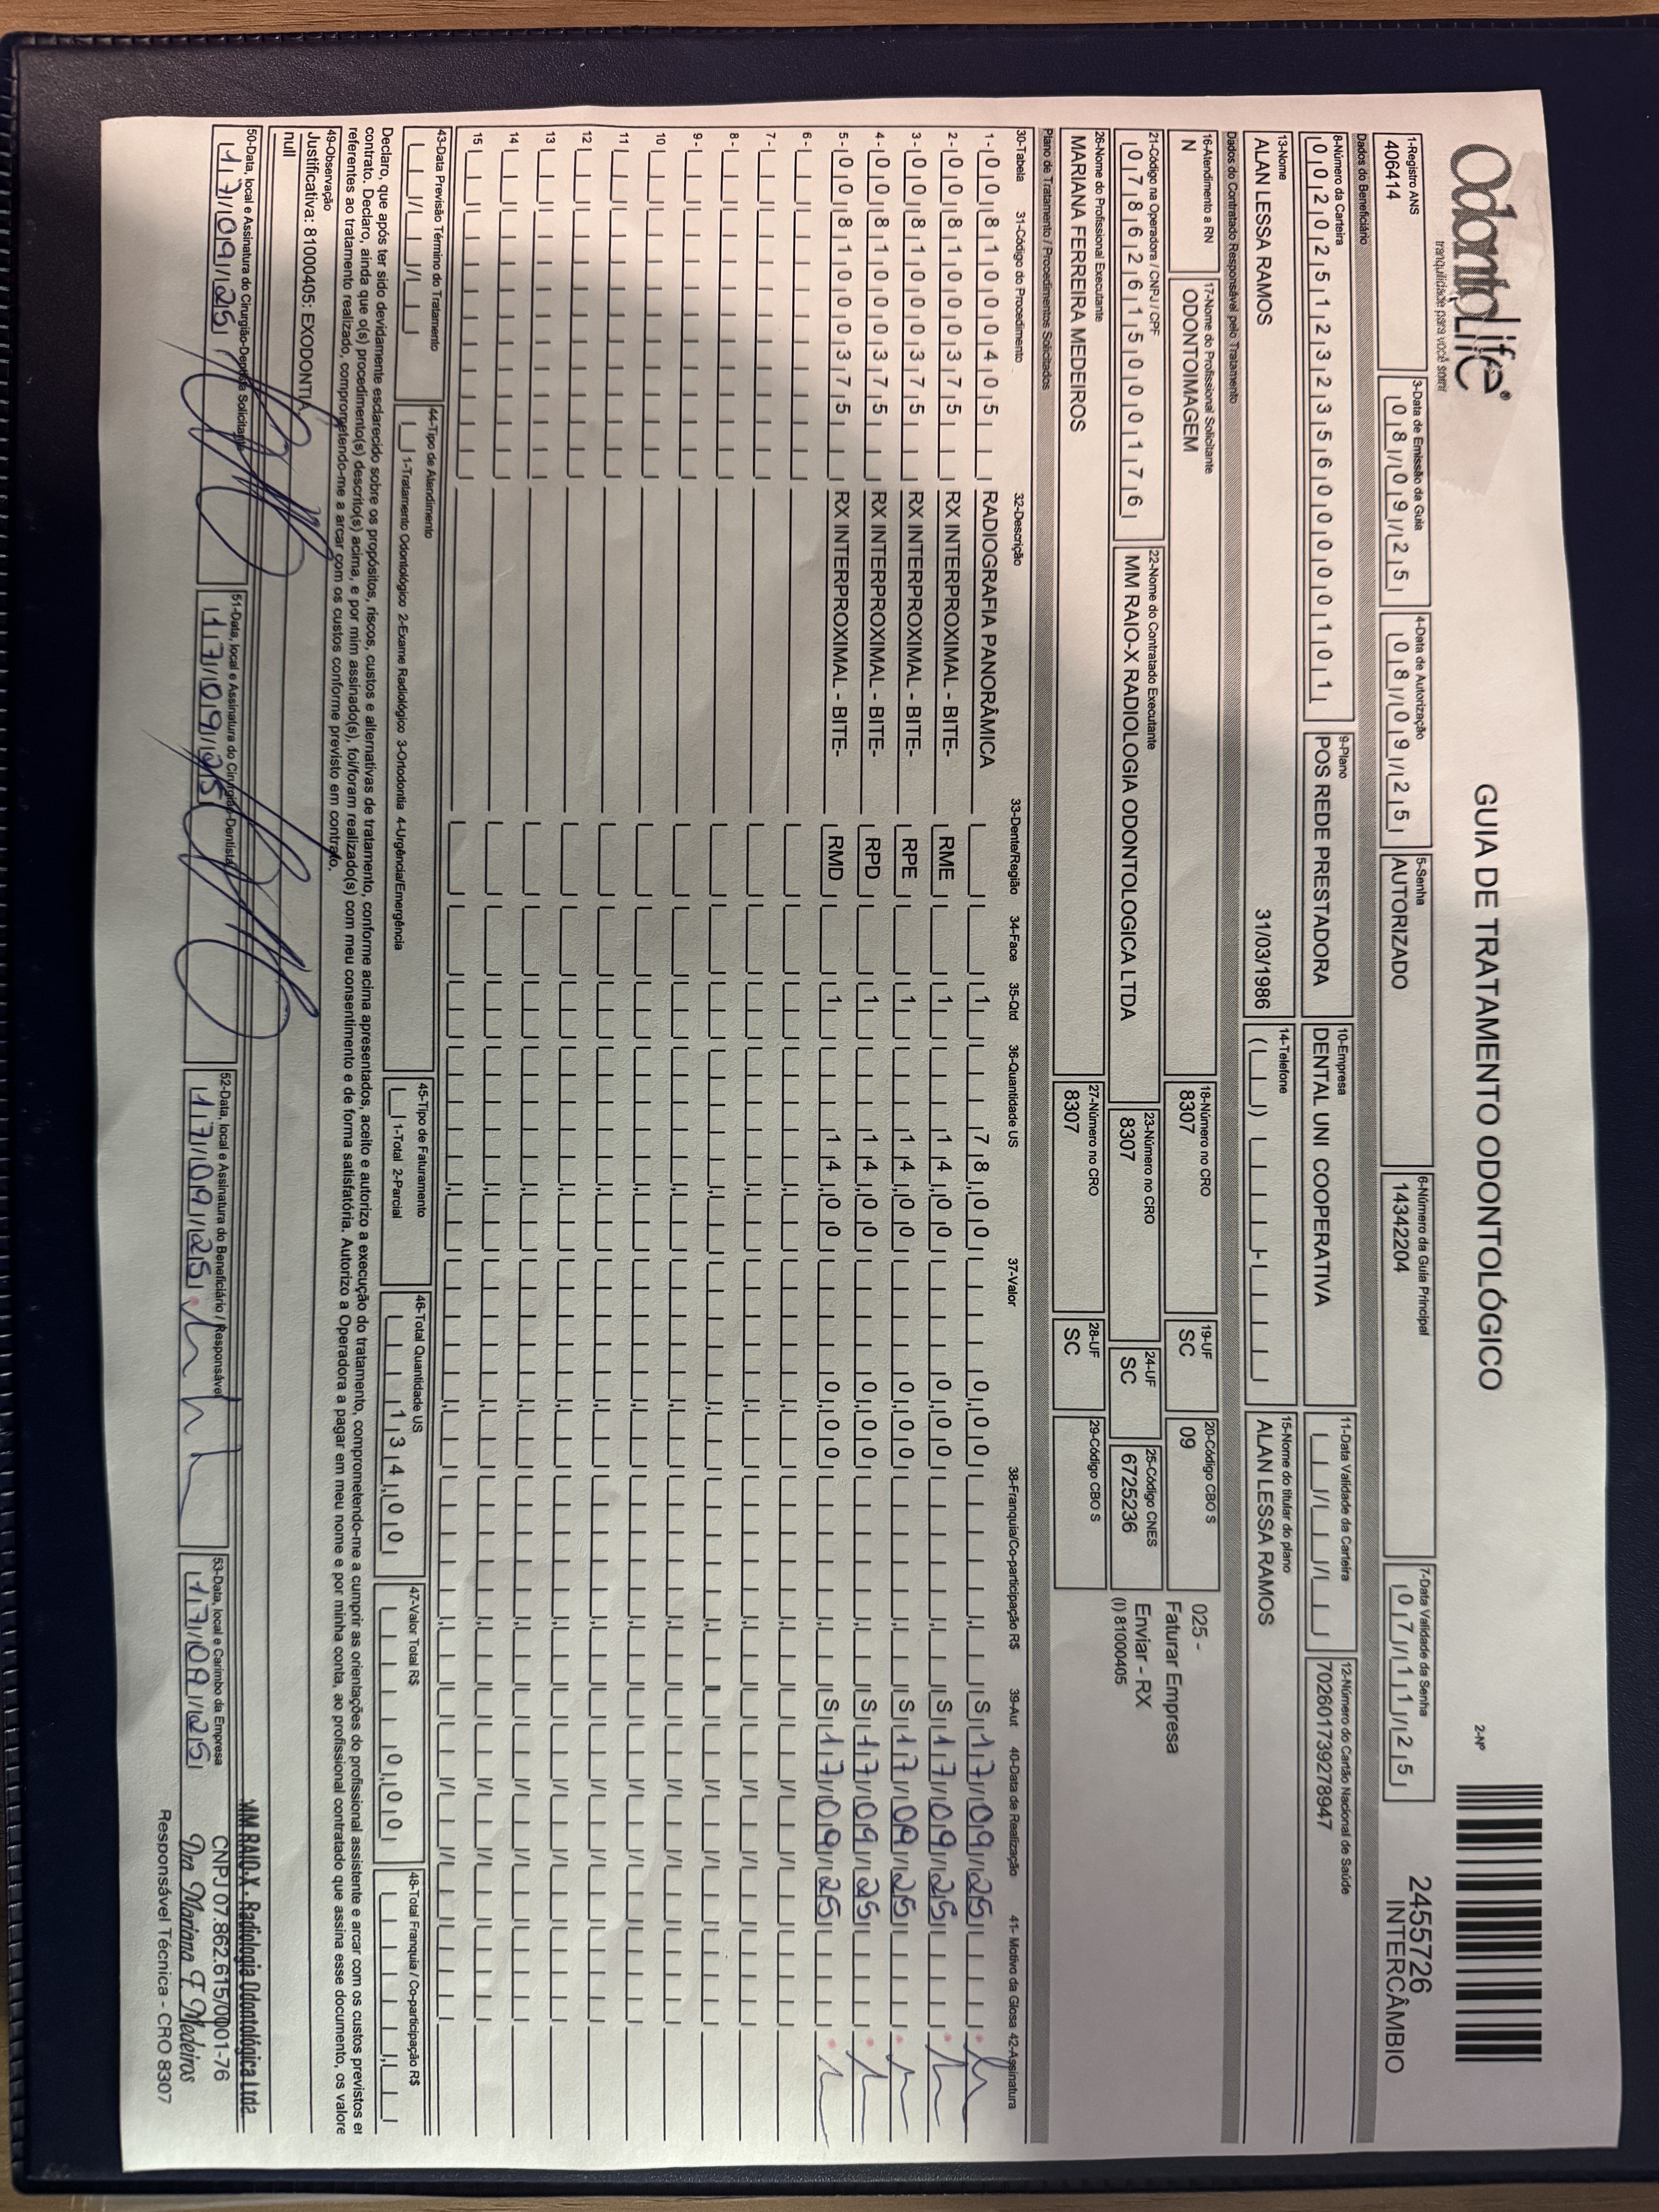 OdontoLife®
tranquilidade para você sorrir
GUIA DE TRATAMENTO ODONTOLÓGICO
2-Nº
2455726
INTERCÂMBIO
1-Registro ANS
406414
3-Data de Emissão da Guia
08/09/25
4-Data de Autorização
08/09/25
5-Senha
AUTORIZADO
6-Número da Guia Principal
14342204
7-Data Validade da Senha
07/11/25
Dados do Beneficiário
8-Número da Carteira
00202512323560000101
9-Plano
POS REDE PRESTADORA
10-Empresa
DENTAL UNI COOPERATIVA
11-Data Validade da Carteira
12-Número do Cartão Nacional de Saúde
702601739278947
13-Nome
ALAN LESSA RAMOS 31/03/1986
14-Telefone
15-Nome do titular do plano
ALAN LESSA RAMOS
Dados do Contratado Responsável pelo Tratamento
16-Atendimento a RN
N
17-Nome do Profissional Solicitante
ODONTOIMAGEM
18-Número no CRO
8307
19-UF
SC
20-Código CBO S
09
025 -
Faturar Empresa
Enviar - RX
(I) 81000405
21-Código na Operadora / CNPJ / CPF
07862615000176
22-Nome do Contratado Executante
MM RAIO-X RADIOLOGIA ODONTOLOGICA LTDA
23-Número no CRO
8307
24-UF
SC
25-Código CNES
6725236
26-Nome do Profissional Executante
MARIANA FERREIRA MEDEIROS
27-Número no CRO
8307
28-UF
SC
29-Código CBO S
Plano de Tratamento / Procedimentos Solicitados
30-Tabela 31-Código do Procedimento 32-Descrição 33-Dente/Região 34-Face 35-Qtd 36-Quantidade US 37-Valor 38-Franquia/Co-participação R$ 39-Aut 40-Data de Realização 41- Motivo da Glosa 42-Assinatura
1- 00 81000405 RADIOGRAFIA PANORÂMICA 1 78,00 0,00 S 17/09/25
2- 00 81000375 RX INTERPROXIMAL - BITE- RME 1 14,00 0,00 S 17/09/25
3- 00 81000375 RX INTERPROXIMAL - BITE- RPE 1 14,00 0,00 S 17/09/25
4- 00 81000375 RX INTERPROXIMAL - BITE- RPD 1 14,00 0,00 S 17/09/25
5- 00 81000375 RX INTERPROXIMAL - BITE- RMD 1 14,00 0,00 S 17/09/25
6-
7-
8-
9-
10
11
12
13
14
15
43-Data Previsão Término do Tratamento
44-Tipo de Atendimento
1-Tratamento Odontológico 2-Exame Radiológico 3-Ortodontia 4-Urgência/Emergência
45-Tipo de Faturamento
1-Total 2-Parcial
46-Total Quantidade US
134,00
47-Valor Total R$
0,00
48-Total Franquia / Co-participação R$
Declaro, que após ter sido devidamente esclarecido sobre os propósitos, riscos, custos e alternativas de tratamento, conforme acima apresentados, aceito e autorizo a execução do tratamento, comprometendo-me a cumprir as orientações do profissional assistente e arcar com os custos previstos e
contrato. Declaro, ainda que o(s) procedimento(s) descrito(s) acima, e por mim assinado(s), foi/foram realizado(s) com meu consentimento e de forma satisfatória. Autorizo a Operadora a pagar em meu nome e por minha conta, ao profissional contratado que assina esse documento, os valore
referentes ao tratamento realizado, comprometendo-me a arcar com os custos conforme previsto em contrato.
49-Observação
Justificativa: 81000405: EXODONTIA.
null
50-Data, local e Assinatura do Cirurgião-Dentista Solicitante
17/09/25
51-Data, local e Assinatura do Cirurgião-Dentista
17/09/25
52-Data, local e Assinatura do Beneficiário / Responsável
17/09/25
53-Data, local e Carimbo da Empresa
17/09/25
MM RAIO-X - Radiologia Odontológica Ltda.
CNPJ 07.862.615/0001-76
Dra Mariana F. Medeiros
Responsável Técnica - CRO 8307